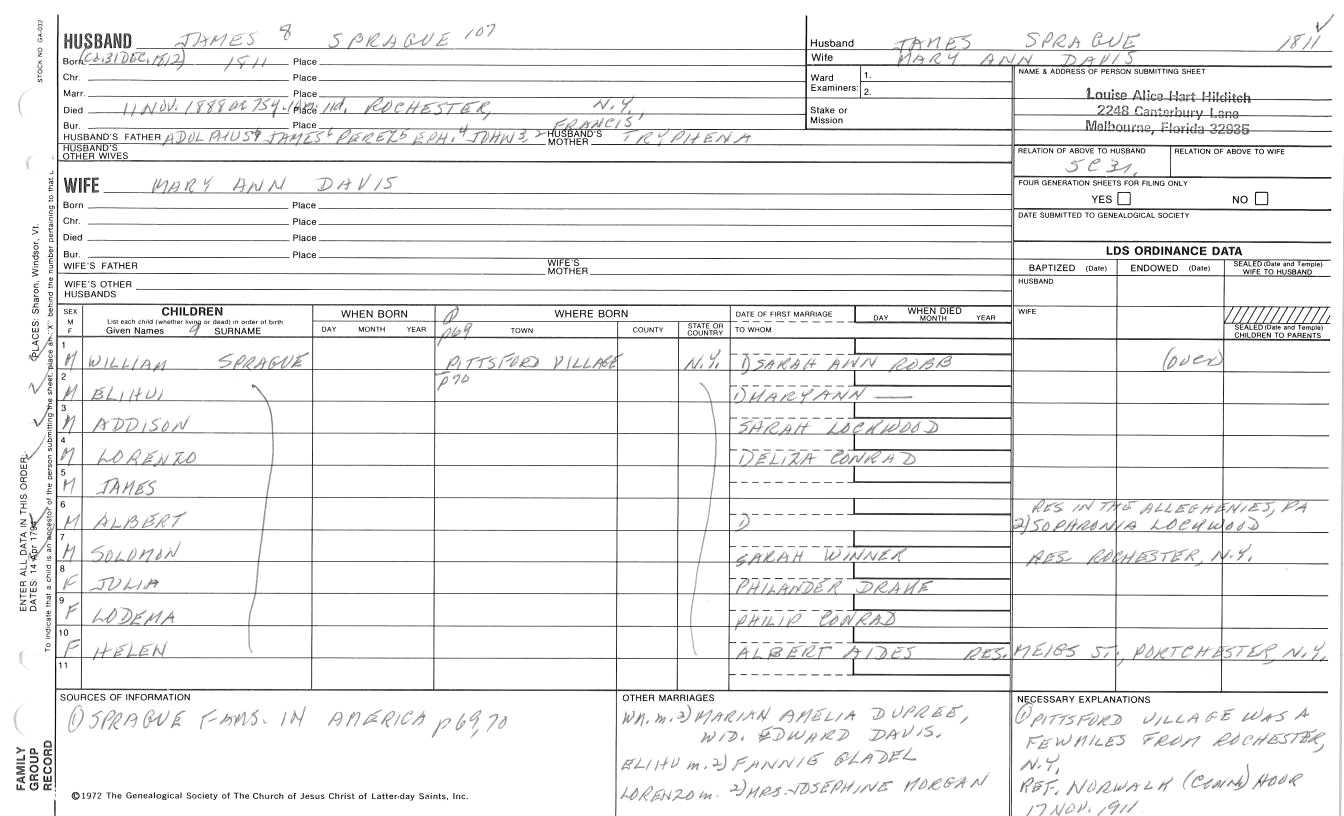 STOCK NO. GA-032
HUSBAND JAMES 8 SPRAGUE 107
Born (Ca. 31 DEC. 1812) 1811 Place
Chr. Place
Marr. Place
Died 11 NOV. 1888 Place ROCHESTER, N.Y.
Bur. Place
HUSBAND'S FATHER ADOLPHUS JAMES PEREZ EPH. JOHN FRANCIS HUSBAND'S MOTHER TRYPHENA
HUSBAND'S OTHER WIVES
Husband JAMES SPRAGUE 1811
Wife MARY ANN DAVIS
Ward Examiners: 1.
2.
Stake or Mission
NAME & ADDRESS OF PERSON SUBMITTING SHEET
Louise Alice Hart Hilditch
2248 Canterbury Lane
Melbourne, Florida 32935
RELATION OF ABOVE TO HUSBAND RELATION OF ABOVE TO WIFE
5C 3r.
FOUR GENERATION SHEETS FOR FILING ONLY
YES NO
DATE SUBMITTED TO GENEALOGICAL SOCIETY
WIFE MARY ANN DAVIS
Born Place
Chr. Place
Died Place
Bur. Place
WIFE'S FATHER WIFE'S MOTHER
WIFE'S OTHER HUSBANDS
LDS ORDINANCE DATA
BAPTIZED (Date) ENDOWED (Date) SEALED (Date and Temple) WIFE TO HUSBAND
HUSBAND
WIFE
SEALED (Date and Temple) CHILDREN TO PARENTS
SEX M F
CHILDREN
List each child (whether living or dead) in order of birth
Given Names 9 SURNAME
WHEN BORN
DAY MONTH YEAR
① p69 WHERE BORN
TOWN COUNTY STATE OR COUNTRY
DATE OF FIRST MARRIAGE
TO WHOM
WHEN DIED
DAY MONTH YEAR
1 M WILLIAM SPRAGUE PITTSFORD VILLAGE N.Y. 1) SARAH ANN ROBB (OVER)
p70
2 M ELIHUI 1) MARYANN —
3 M ADDISON SARAH LOCKWOOD
4 M LORENZO 1) ELIZA CONRAD
5 M JAMES
6 M ALBERT 1) RES IN THE ALLEGHENIES, PA
2) SOPARONIA LOCKWOOD
7 M SOLOMON SARAH WINNER RES. ROCHESTER, N.Y.
8 F JULIA PHILANDER DRAKE
9 F LODEMA PHILIP CONRAD
10 F HELEN ALBERT AIDES RES. MEIGS ST., PORTCHESTER, N.Y.
11
SOURCES OF INFORMATION
① SPRAGUE FAMS. IN AMERICA p69,70
OTHER MARRIAGES
WM. m. 2) MARIAN AMELIA DUPREE,
WID. EDWARD DAVIS.
ELIHU m. 2) FANNIE GLADEL
LORENZO m. 2) MRS. JOSEPHINE MORGAN
NECESSARY EXPLANATIONS
① PITTSFORD VILLAGE WAS A
FEW MILES FROM ROCHESTER,
N.Y.
REF. NORWALK (CONN) HOUR
17 NOV. 1911
©1972 The Genealogical Society of The Church of Jesus Christ of Latter-day Saints, Inc.
FAMILY GROUP RECORD
ENTER ALL DATA IN THIS ORDER:
DATES: 14 Apr 1794
PLACES: Sharon, Windsor, Vt.
To indicate that a child is an ancestor of the person submitting the sheet, place an "X" behind the number pertaining to that